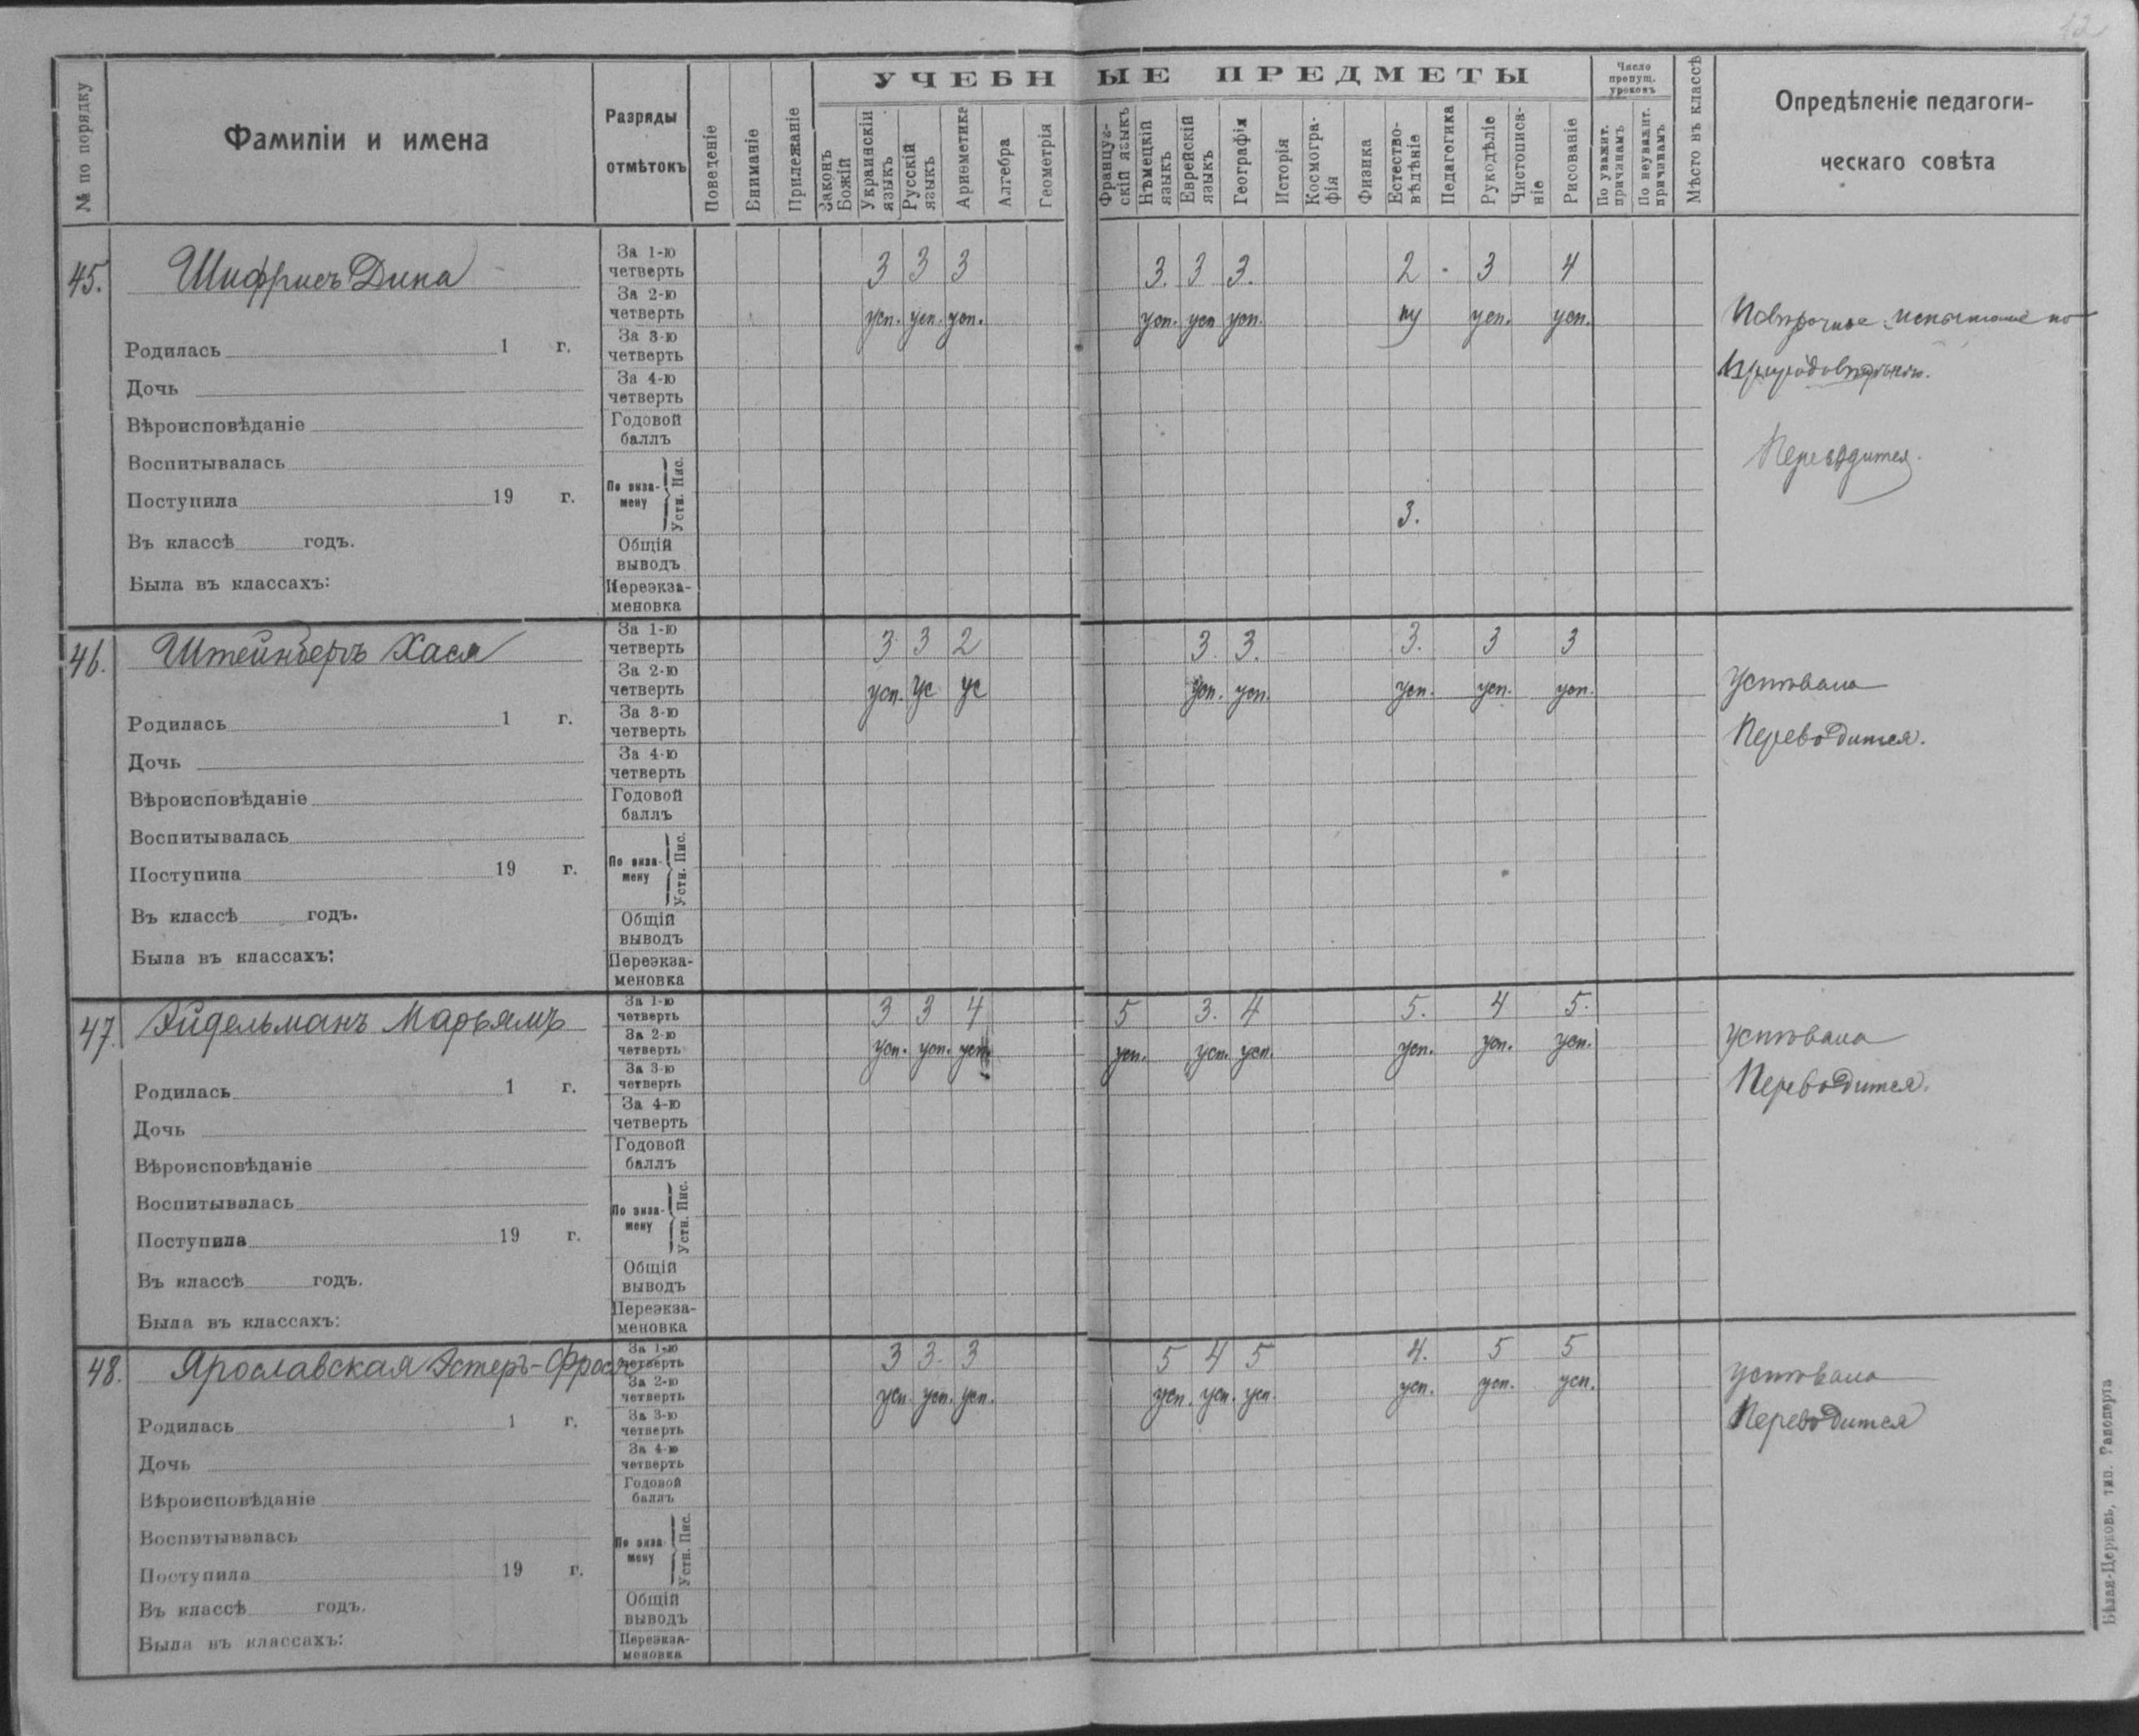 12
№ по порядку
Фамиліи и имена
Разряды
отмѣтокъ
Поведеніе
Вниманіе
Прилежаніе
УЧЕБНЫЕ ПРЕДМЕТЫ
Законъ Божій
Украинскій языкъ
Русскій языкъ
Ариѳметика
Алгебра
Геометрія
Француз-скій языкъ
Нѣмецкій языкъ
Еврейскій языкъ
Географія
Исторія
Космогра-фія
Физика
Естество-вѣдѣніе
Педагогика
Рукодѣліе
Чистописа-ніе
Рисованіе
Число пропущ. уроковъ
По уважит. причинамъ
По неуважит. причинамъ
Мѣсто въ классѣ
Опредѣленіе педагоги-
ческаго совѣта
45. Шифрисъ Дина
За 1-ю четверть 3 3 3 3. 3 3. 2 3 4
За 2-ю четверть усп. усп. усп. усп. усп усп. ну усп. усп.
Повѣрочное испытаніе по
природовѣдѣнію.
Переводится.
Родилась 1 г.
За 3-ю четверть
Дочь
За 4-ю четверть
Вѣроисповѣданіе
Годовой баллъ
Воспитывалась
По экза-мену Устн. Пис.
Поступила 19 г.
3.
Въ классѣ годъ.
Общій выводъ
Была въ классахъ:
Переэкза-меновка
46. Штейнбергъ Хася
За 1-ю четверть 3 3 2 3. 3. 3. 3 3
За 2-ю четверть усп. ус ус усп. усп. усп. усп. усп.
Успѣвала
Переводится.
Родилась 1 г.
За 3-ю четверть
Дочь
За 4-ю четверть
Вѣроисповѣданіе
Годовой баллъ
Воспитывалась
По экза-мену Устн. Пис.
Поступила 19 г.
Въ классѣ годъ.
Общій выводъ
Была въ классахъ:
Переэкза-меновка
47. Эйдельманъ Марьямъ
За 1-ю четверть 3 3 4 5 3. 4 5. 4 5.
За 2-ю четверть усп. усп. усп. усп. усп. усп. усп. усп. усп.
Успѣвала
Переводится.
Родилась 1 г.
За 3-ю четверть
Дочь
За 4-ю четверть
Вѣроисповѣданіе
Годовой баллъ
Воспитывалась
По экза-мену Устн. Пис.
Поступила 19 г.
Въ классѣ годъ.
Общій выводъ
Была въ классахъ:
Переэкза-меновка
48. Ярославская Эстеръ-Фрося
За 1-ю четверть 3 3. 3 5 4 5 4. 5 5
За 2-ю четверть усп. усп. усп. усп. усп. усп. усп. усп. усп.
Успѣвала
Переводится
Родилась 1 г.
За 3-ю четверть
Дочь
За 4-ю четверть
Вѣроисповѣданіе
Годовой баллъ
Воспитывалась
По экза-мену Устн. Пис.
Поступила 19 г.
Въ классѣ годъ.
Общій выводъ
Была въ классахъ:
Переэкза-меновка
Бѣлая-Церковь, тип. Рапопорта